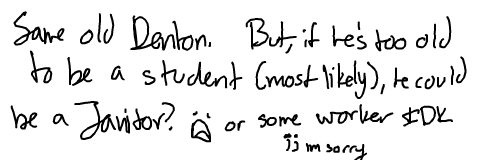 Same old Denton. But, if he's too old
to be a student (most likely), he could
be a Janitor? :( or some worker IDK
jj im sorry